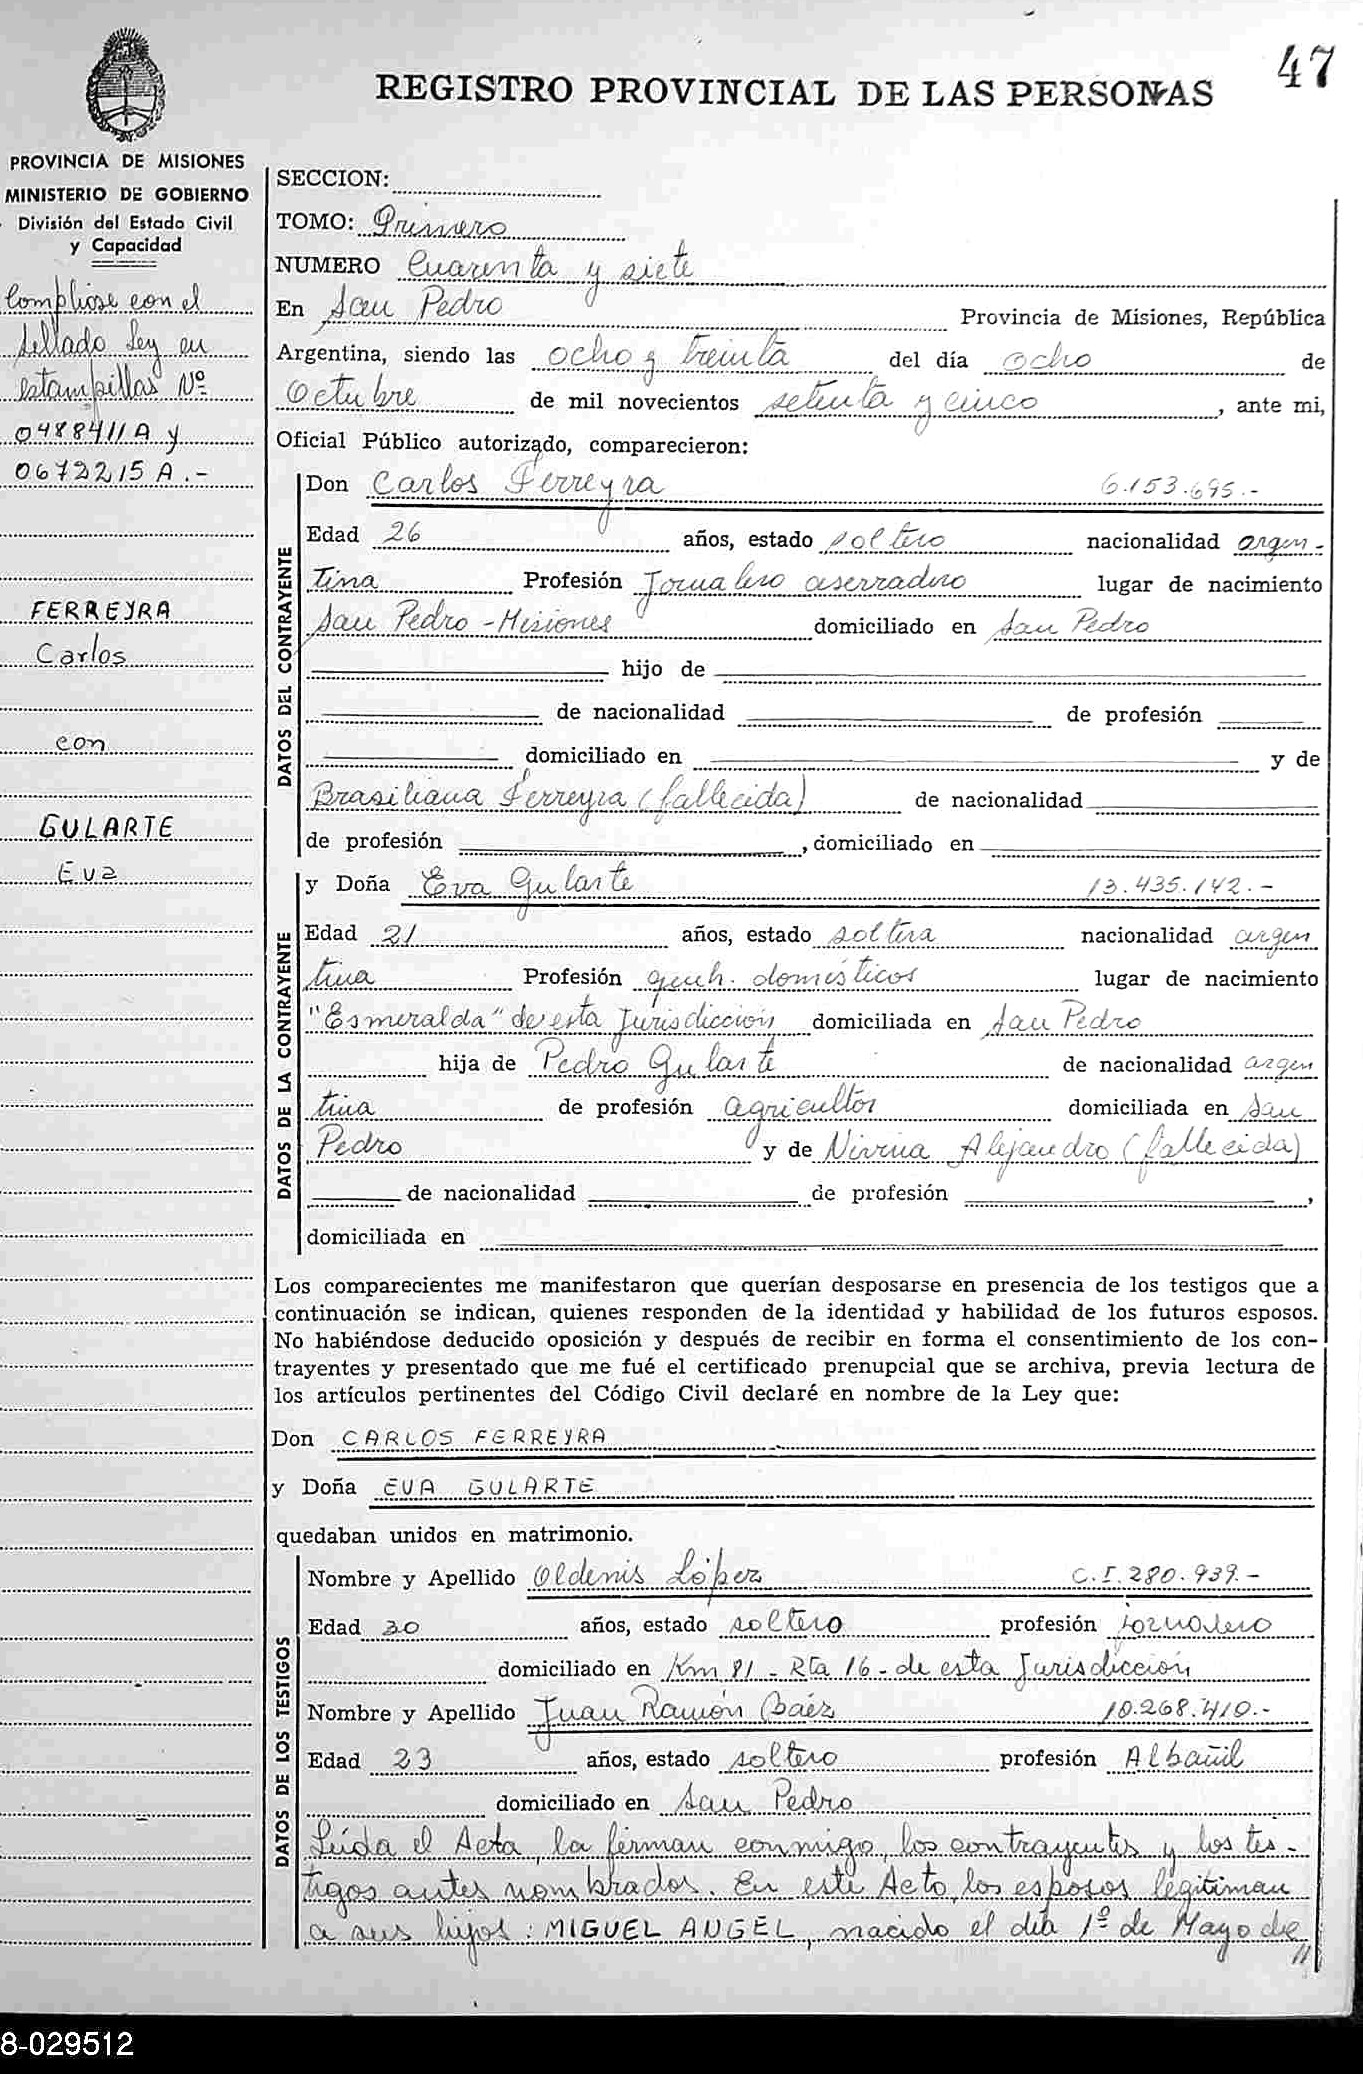 47
REGISTRO PROVINCIAL DE LAS PERSONAS
PROVINCIA DE MISIONES
MINISTERIO DE GOBIERNO
División del Estado Civil
y Capacidad
Complióse con el
sellado Ley en
estampillas Nº
0488411A y
0672215 A.-
FERREYRA
Carlos
con
GULARTE
Eva
SECCION:
TOMO: Primero
NUMERO Cuarenta y siete
En San Pedro Provincia de Misiones, República
Argentina, siendo las ocho y treinta del día ocho de
Octubre de mil novecientos setenta y cinco, ante mi,
Oficial Público autorizado, comparecieron:
DATOS DEL CONTRAYENTE
Don Carlos Ferreyra 6.153.695.-
Edad 26 años, estado soltero nacionalidad argen-
tina Profesión Jornalero aserradero lugar de nacimiento
San Pedro - Misiones domiciliado en San Pedro
hijo de
de nacionalidad de profesión
domiciliado en y de
Brasiliana Ferreyra (fallecida) de nacionalidad
de profesión , domiciliado en
DATOS DE LA CONTRAYENTE
y Doña Eva Gularte 13.435.142.-
Edad 21 años, estado soltera nacionalidad argen
tina Profesión queh. domésticos lugar de nacimiento
"Esmeralda" de esta Jurisdicción domiciliada en San Pedro
hija de Pedro Gularte de nacionalidad argen
tina de profesión agricultor domiciliada en San
Pedro y de Nivina Alejandro (fallecida)
de nacionalidad de profesión ,
domiciliada en
Los comparecientes me manifestaron que querían desposarse en presencia de los testigos que a
continuación se indican, quienes responden de la identidad y habilidad de los futuros esposos.
No habiéndose deducido oposición y después de recibir en forma el consentimiento de los con-
trayentes y presentado que me fué el certificado prenupcial que se archiva, previa lectura de
los artículos pertinentes del Código Civil declaré en nombre de la Ley que:
Don CARLOS FERREYRA
y Doña EVA GULARTE
quedaban unidos en matrimonio.
DATOS DE LOS TESTIGOS
Nombre y Apellido Oldenis López C.I. 280.939.-
Edad 20 años, estado soltero profesión jornalero
domiciliado en Km 81 - Rta 16 - de esta Jurisdicción
Nombre y Apellido Juan Ramón Báez 10.268.410.-
Edad 23 años, estado soltero profesión Albañil
domiciliado en San Pedro
Leída el Acta, la firman conmigo, los contrayentes y los tes-
tigos antes nombrados. En este Acto, los esposos legitiman
a sus hijos: MIGUEL ANGEL, nacido el día 1º de Mayo de
//
8-029512